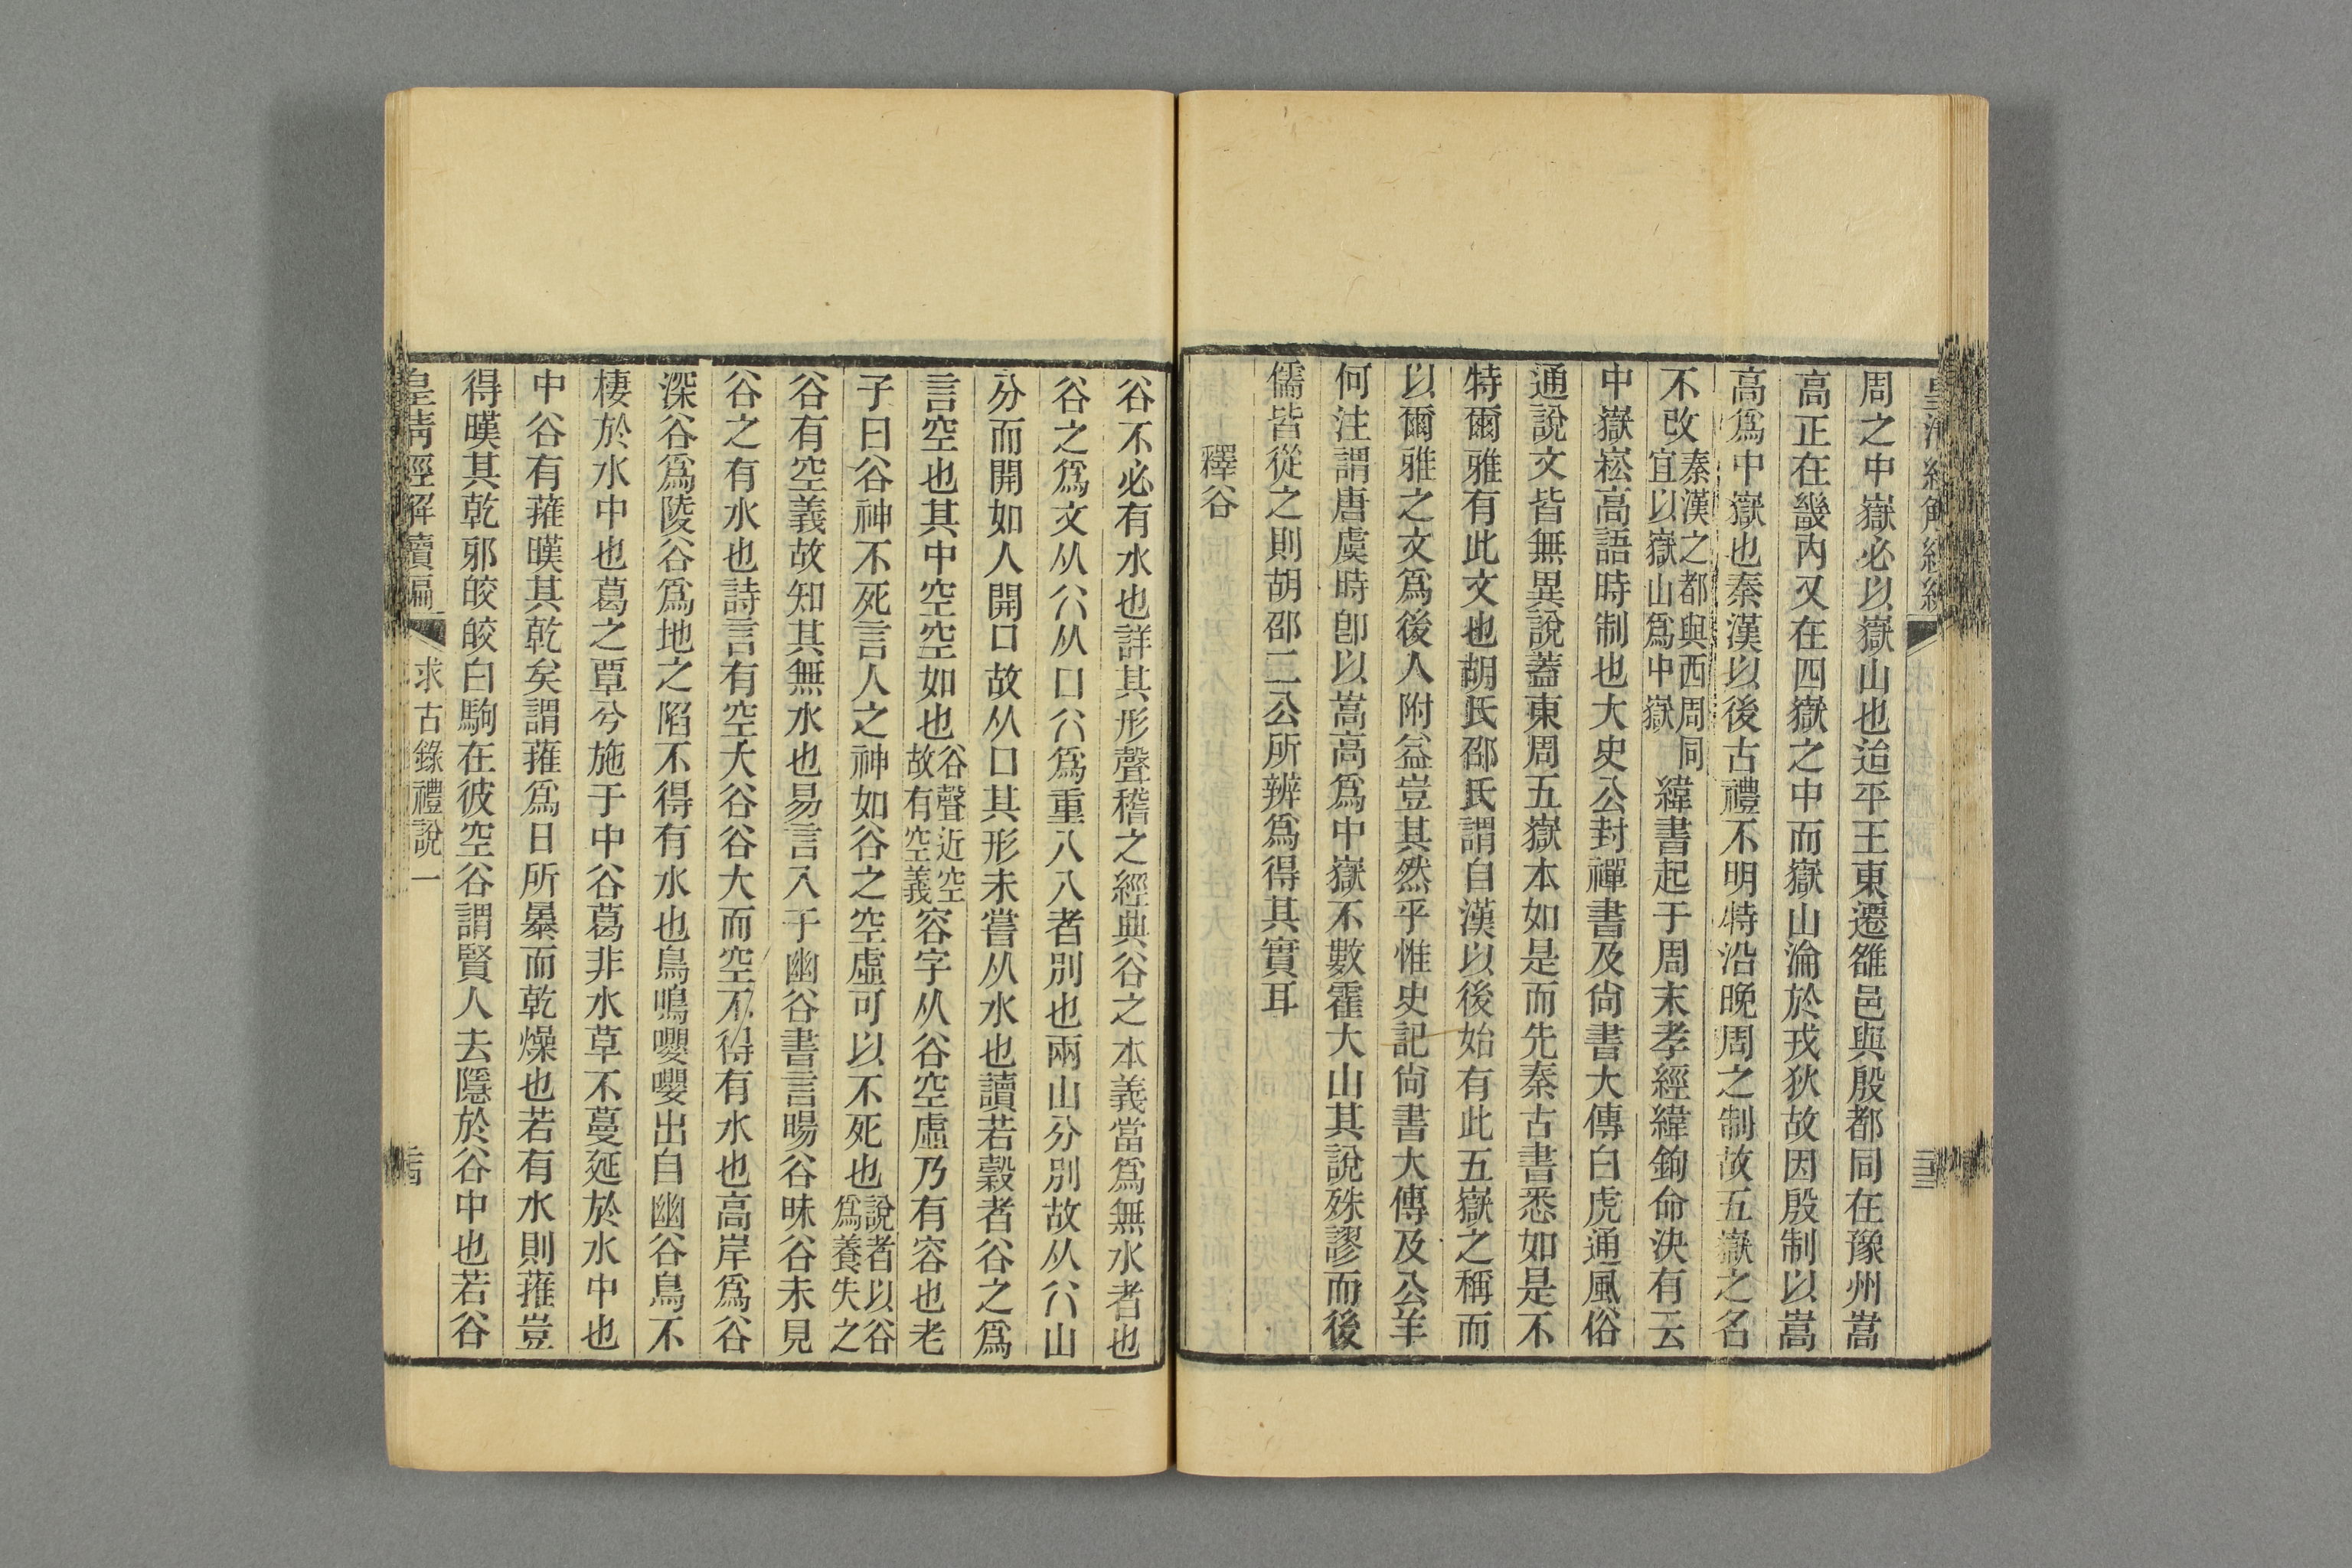 周之中嶽必以嶽山也迨平王東遷雒邑與殷都同在豫州嵩
高正在畿內又在四嶽之中而嶽山淪於戎狄故因殷制以嵩
高爲中嶽也秦漢以後古禮不明特沿晚周之制故五嶽之名
不改秦漢之都與西周同宜以嶽山爲中嶽緯書起于周末孝經緯鉤命決有云
中嶽崧高語時制也大史公封禪書及尙書大傳白虎通風俗
通說文皆無異說蓋東周五嶽本如是而先秦古書悉如是不
特爾雅有此文也胡氏邵氏謂自漢以後始有此五嶽之稱而
以爾雅之文爲後人附益豈其然乎惟史記尙書大傳及公羊
何注謂唐虞時卽以嵩高爲中嶽不數霍大山其說殊謬而後
儒皆從之則胡邵二公所辨爲得其實耳
釋谷
谷不必有水也詳其形聲稽之經典谷之本義當爲無水者也
谷之爲文从公从口公爲重八八者別也兩山分別故从公山
分而開如人開口故从口其形未嘗从水也讀若穀者谷之爲
言空也其中空空如也谷聲近空故有空義容字从谷空虛乃有容也老
子曰谷神不死言人之神如谷之空虛可以不死也說者以谷爲養失之
谷有空義故知其無水也易言入于幽谷書言暘谷昧谷未見
谷之有水也詩言有空大谷谷大而空不得有水也高岸爲谷
深谷爲陵谷爲地之陷不得有水也鳥鳴嚶嚶出自幽谷鳥不
棲於水中也葛之覃兮施于中谷葛非水草不蔓延於水中也
中谷有蓷暵其乾矣謂蓷爲日所暴而乾燥也若有水則蓷豈
得暵其乾邪皎皎白駒在彼空谷謂賢人去隱於谷中也若谷
皇淸經解續編 求古錄禮說一